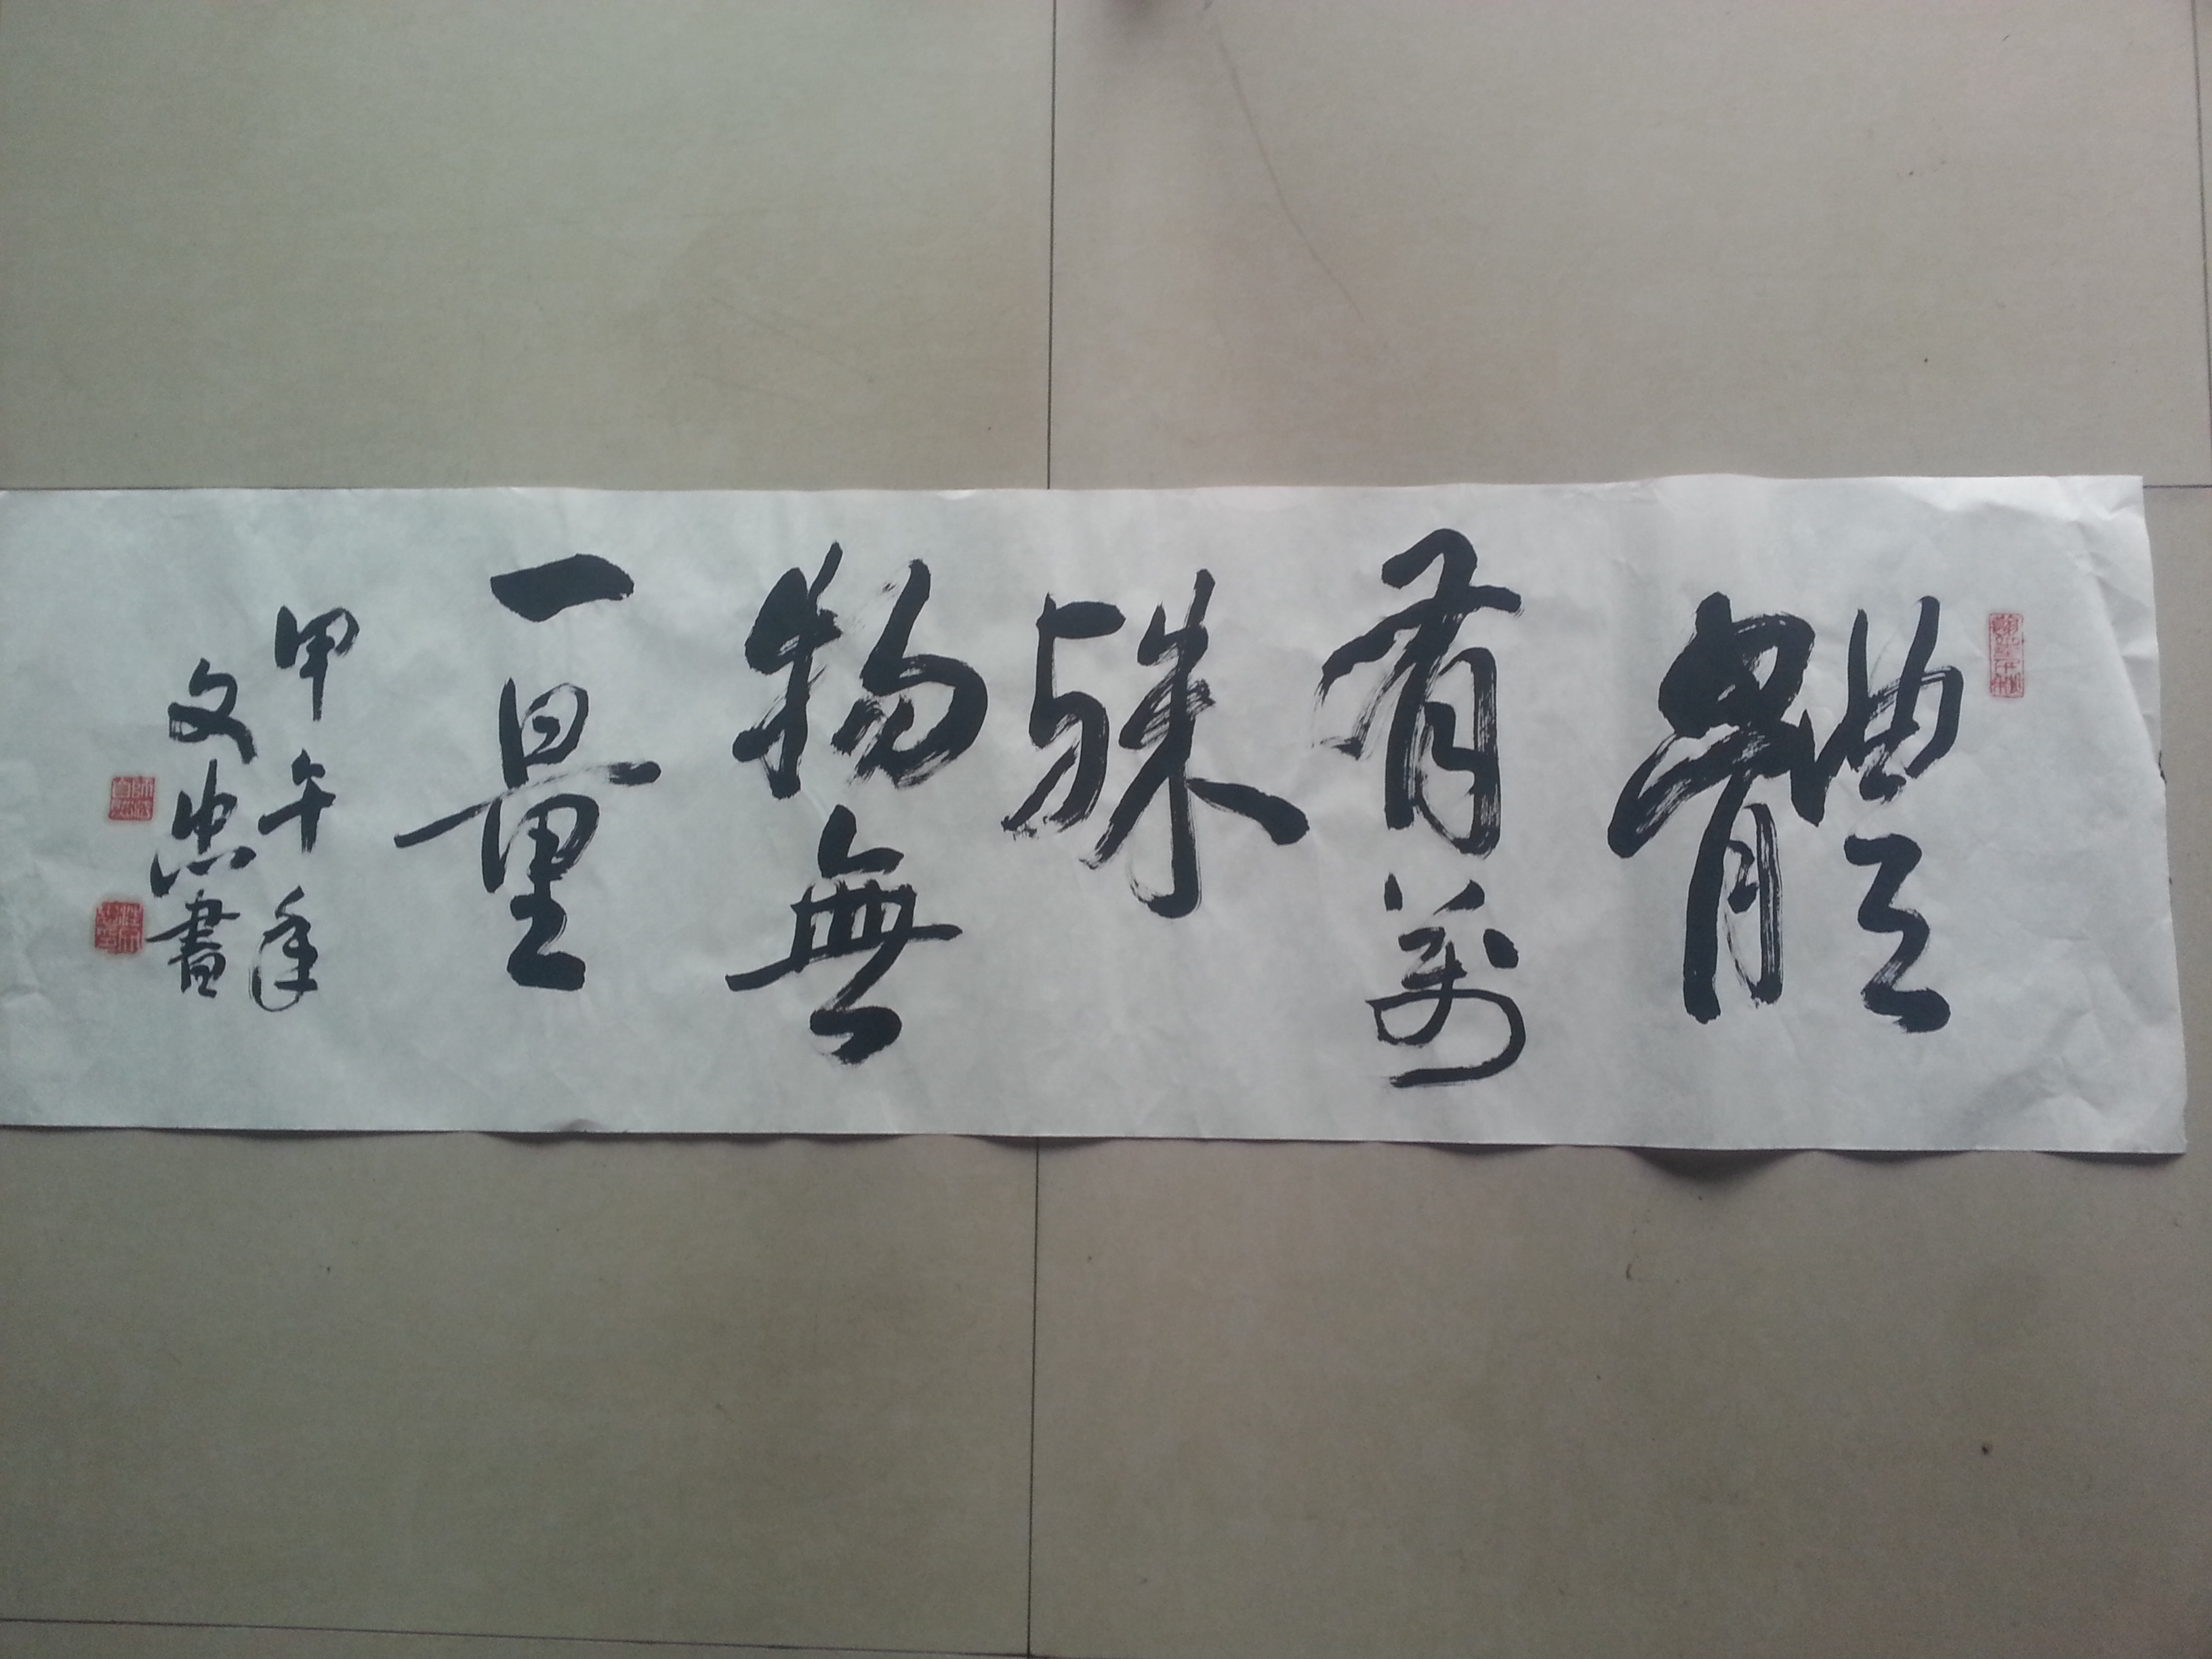 體
有萬
殊
物無
一量
甲午年
文忠書